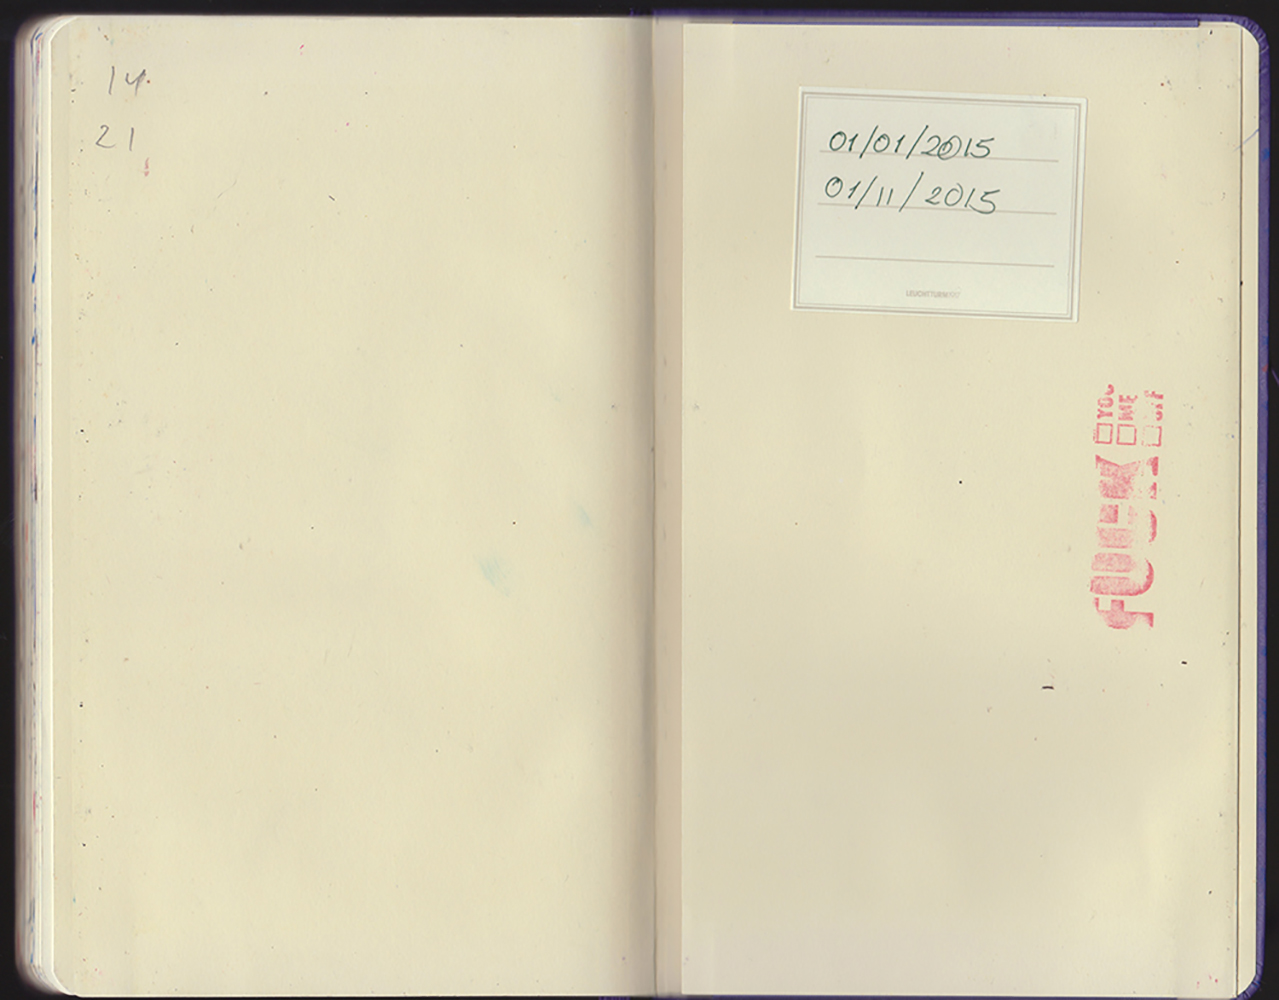 14.
21
01/01/2015
01/11/2015
LEUCHTTURM1917
FUCK
YOU
ME
OFF